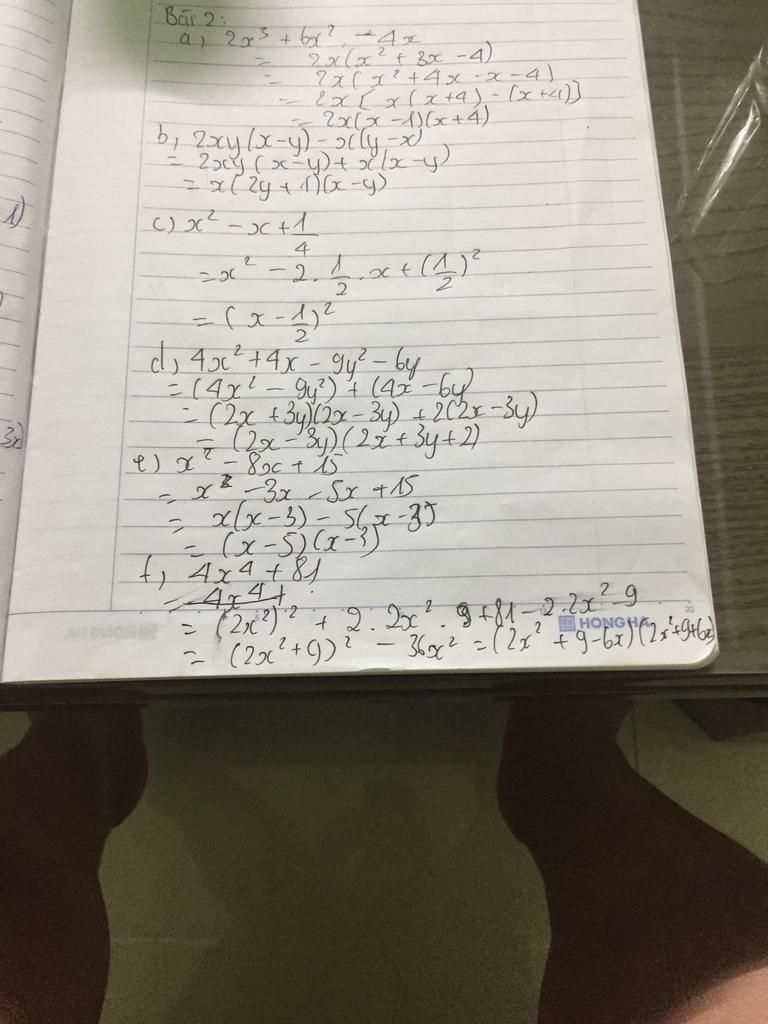 Bài 2:
a, 2x³ + 6x² - 4x
= 2x(x² + 3x - 4)
= 2x(x² + 4x - x - 4)
= 2x[x(x+4) - (x+4)]
= 2x(x - 1)(x+4)
b, 2xy(x-y) - x(y-x)
= 2xy(x-y) + x(x-y)
= x(2y+1)(x-y)
1)
c) x² - x + 1/4
= x² - 2 . 1/2 . x + (1/2)²
= (x - 1/2)²
d, 4x² + 4x - 9y² - 6y
= (4x² - 9y²) + (4x - 6y)
= (2x + 3y)(2x - 3y) + 2(2x - 3y)
= (2x - 3y)(2x + 3y + 2)
3x)
e) x² - 8x + 15
= x² - 3x - 5x + 15
= x(x-3) - 5(x-3)
= (x-5)(x-3)
f, 4x⁴ + 81
= 4x⁴ +
= (2x²)² + 2 . 2x² . 9 + 81 - 2.2x².9
HONG HA
= (2x²+9)² - 36x² = (2x² + 9 - 6x)(2x²+9+6x)